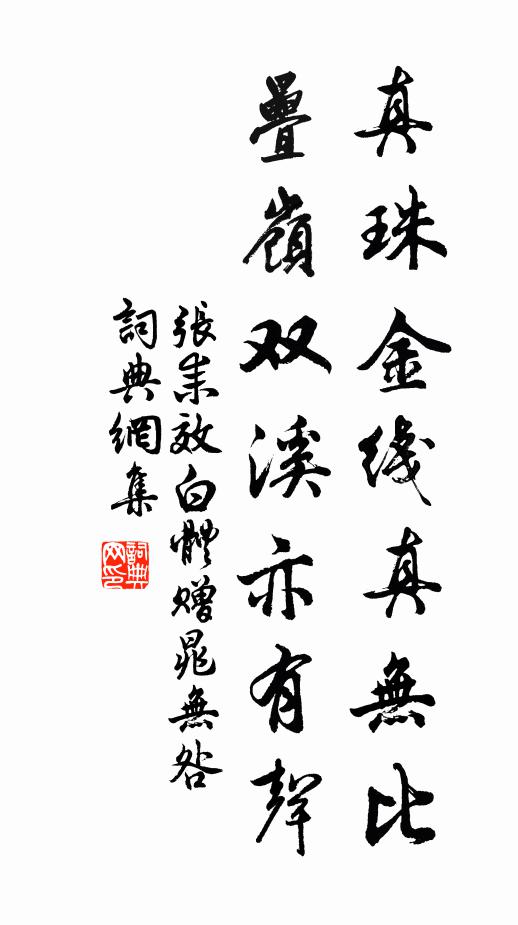 真珠金线真無比
疊嶺双溪亦有聲
張耒效白體贈晁無咎
詞典網集
詞典網印